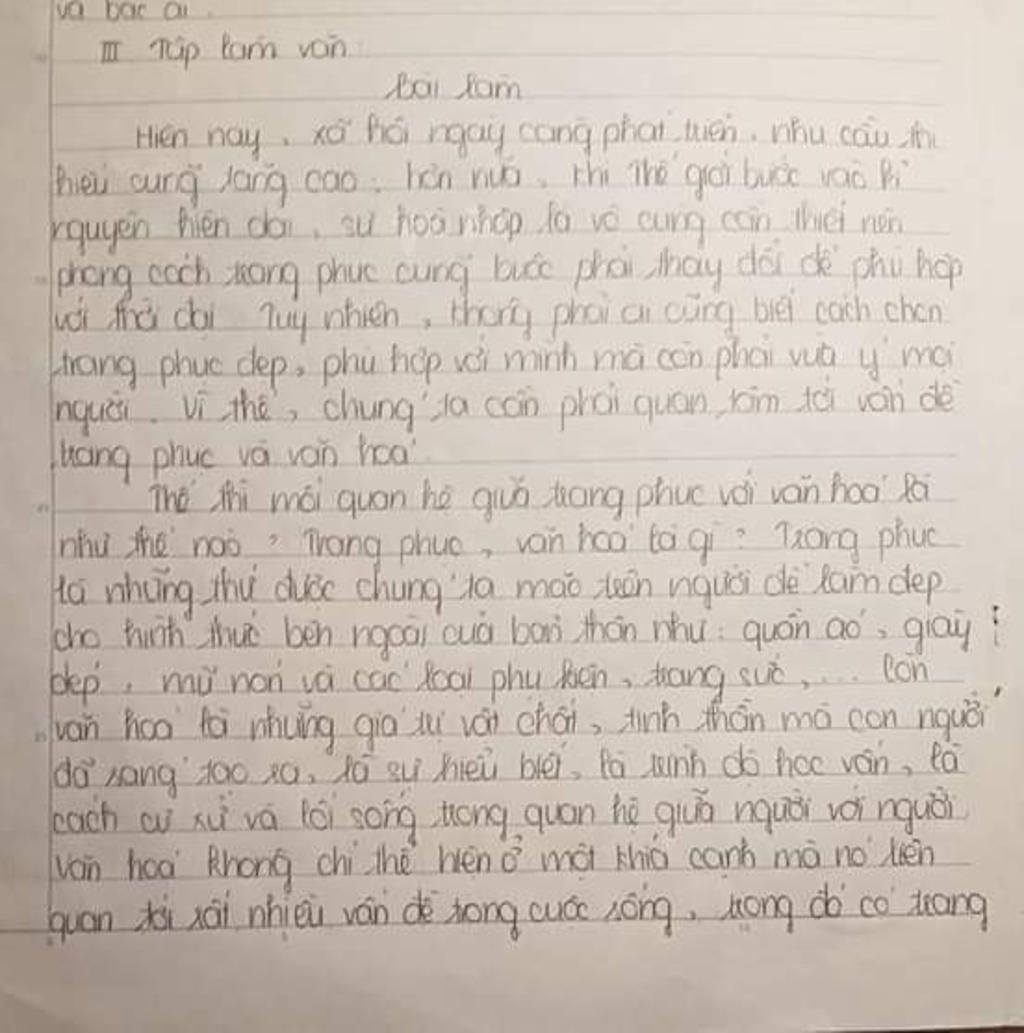 và bác ái.
III Tập làm văn:
Bài làm
Hiện nay, xã hội ngày càng phát triển, nhu cầu thị
hiếu cũng tăng cao, hơn nữa, khi thế giới bước vào kỉ
nguyên hiện đại, sự hoà nhập là vô cùng cần thiết nên
phong cách trang phục cũng bước phải thay đổi để phù hợp
với thời đại Tuy nhiên, không phải ai cũng biết cách chọn
trang phục đẹp, phù hợp với mình mà còn phải vừa ý mọi
người. Vì thế, chúng ta cần phải quan tâm tới vấn đề
trang phục và văn hoá.
Thế thì mối quan hệ giữa trang phục với văn hoá là
như thế nào? Trang phục, văn hoá là gì? Trang phục
là những thứ được chúng ta mặc trên người để làm đẹp
cho hình thức bên ngoài của bản thân như: quần áo, giày
dép, mũ nón và các loại phụ kiện, trang sức,... Còn
văn hoá là những giá trị vật chất, tinh thần mà con người
đã sáng tạo ra, là sự hiểu biết, là trình độ học vấn, là
cách cư xử và lối sống trong quan hệ giữa người với người
Văn hoá không chỉ thể hiện ở một khía cạnh mà nó liên
quan tới rất nhiều vấn đề trong cuộc sống, trong đó có trang